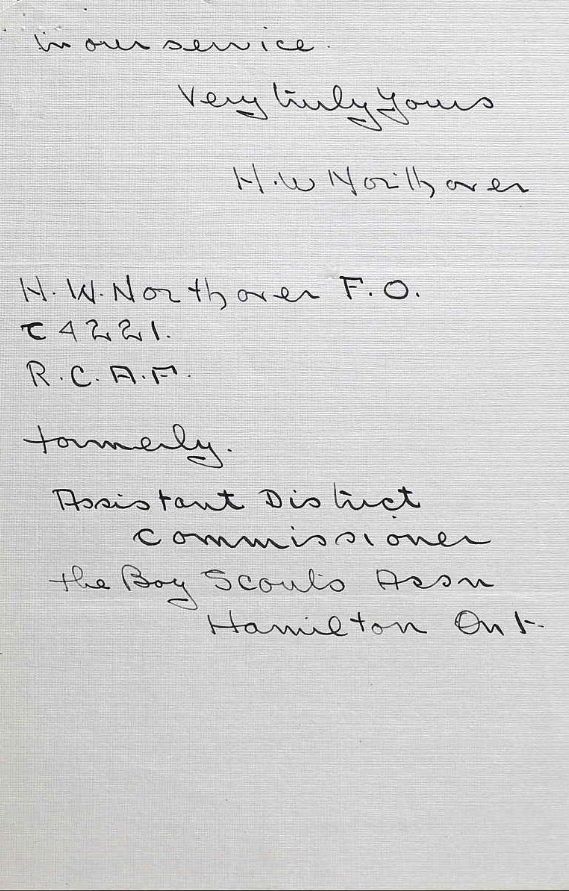 in our service.
Very truly yours
H.W Northover
H.W. Northover F.O.
C4221.
R.C.A.F.
formerly.
Assistant District
Commissioner
the Boy Scouts Assn
Hamilton Ont.